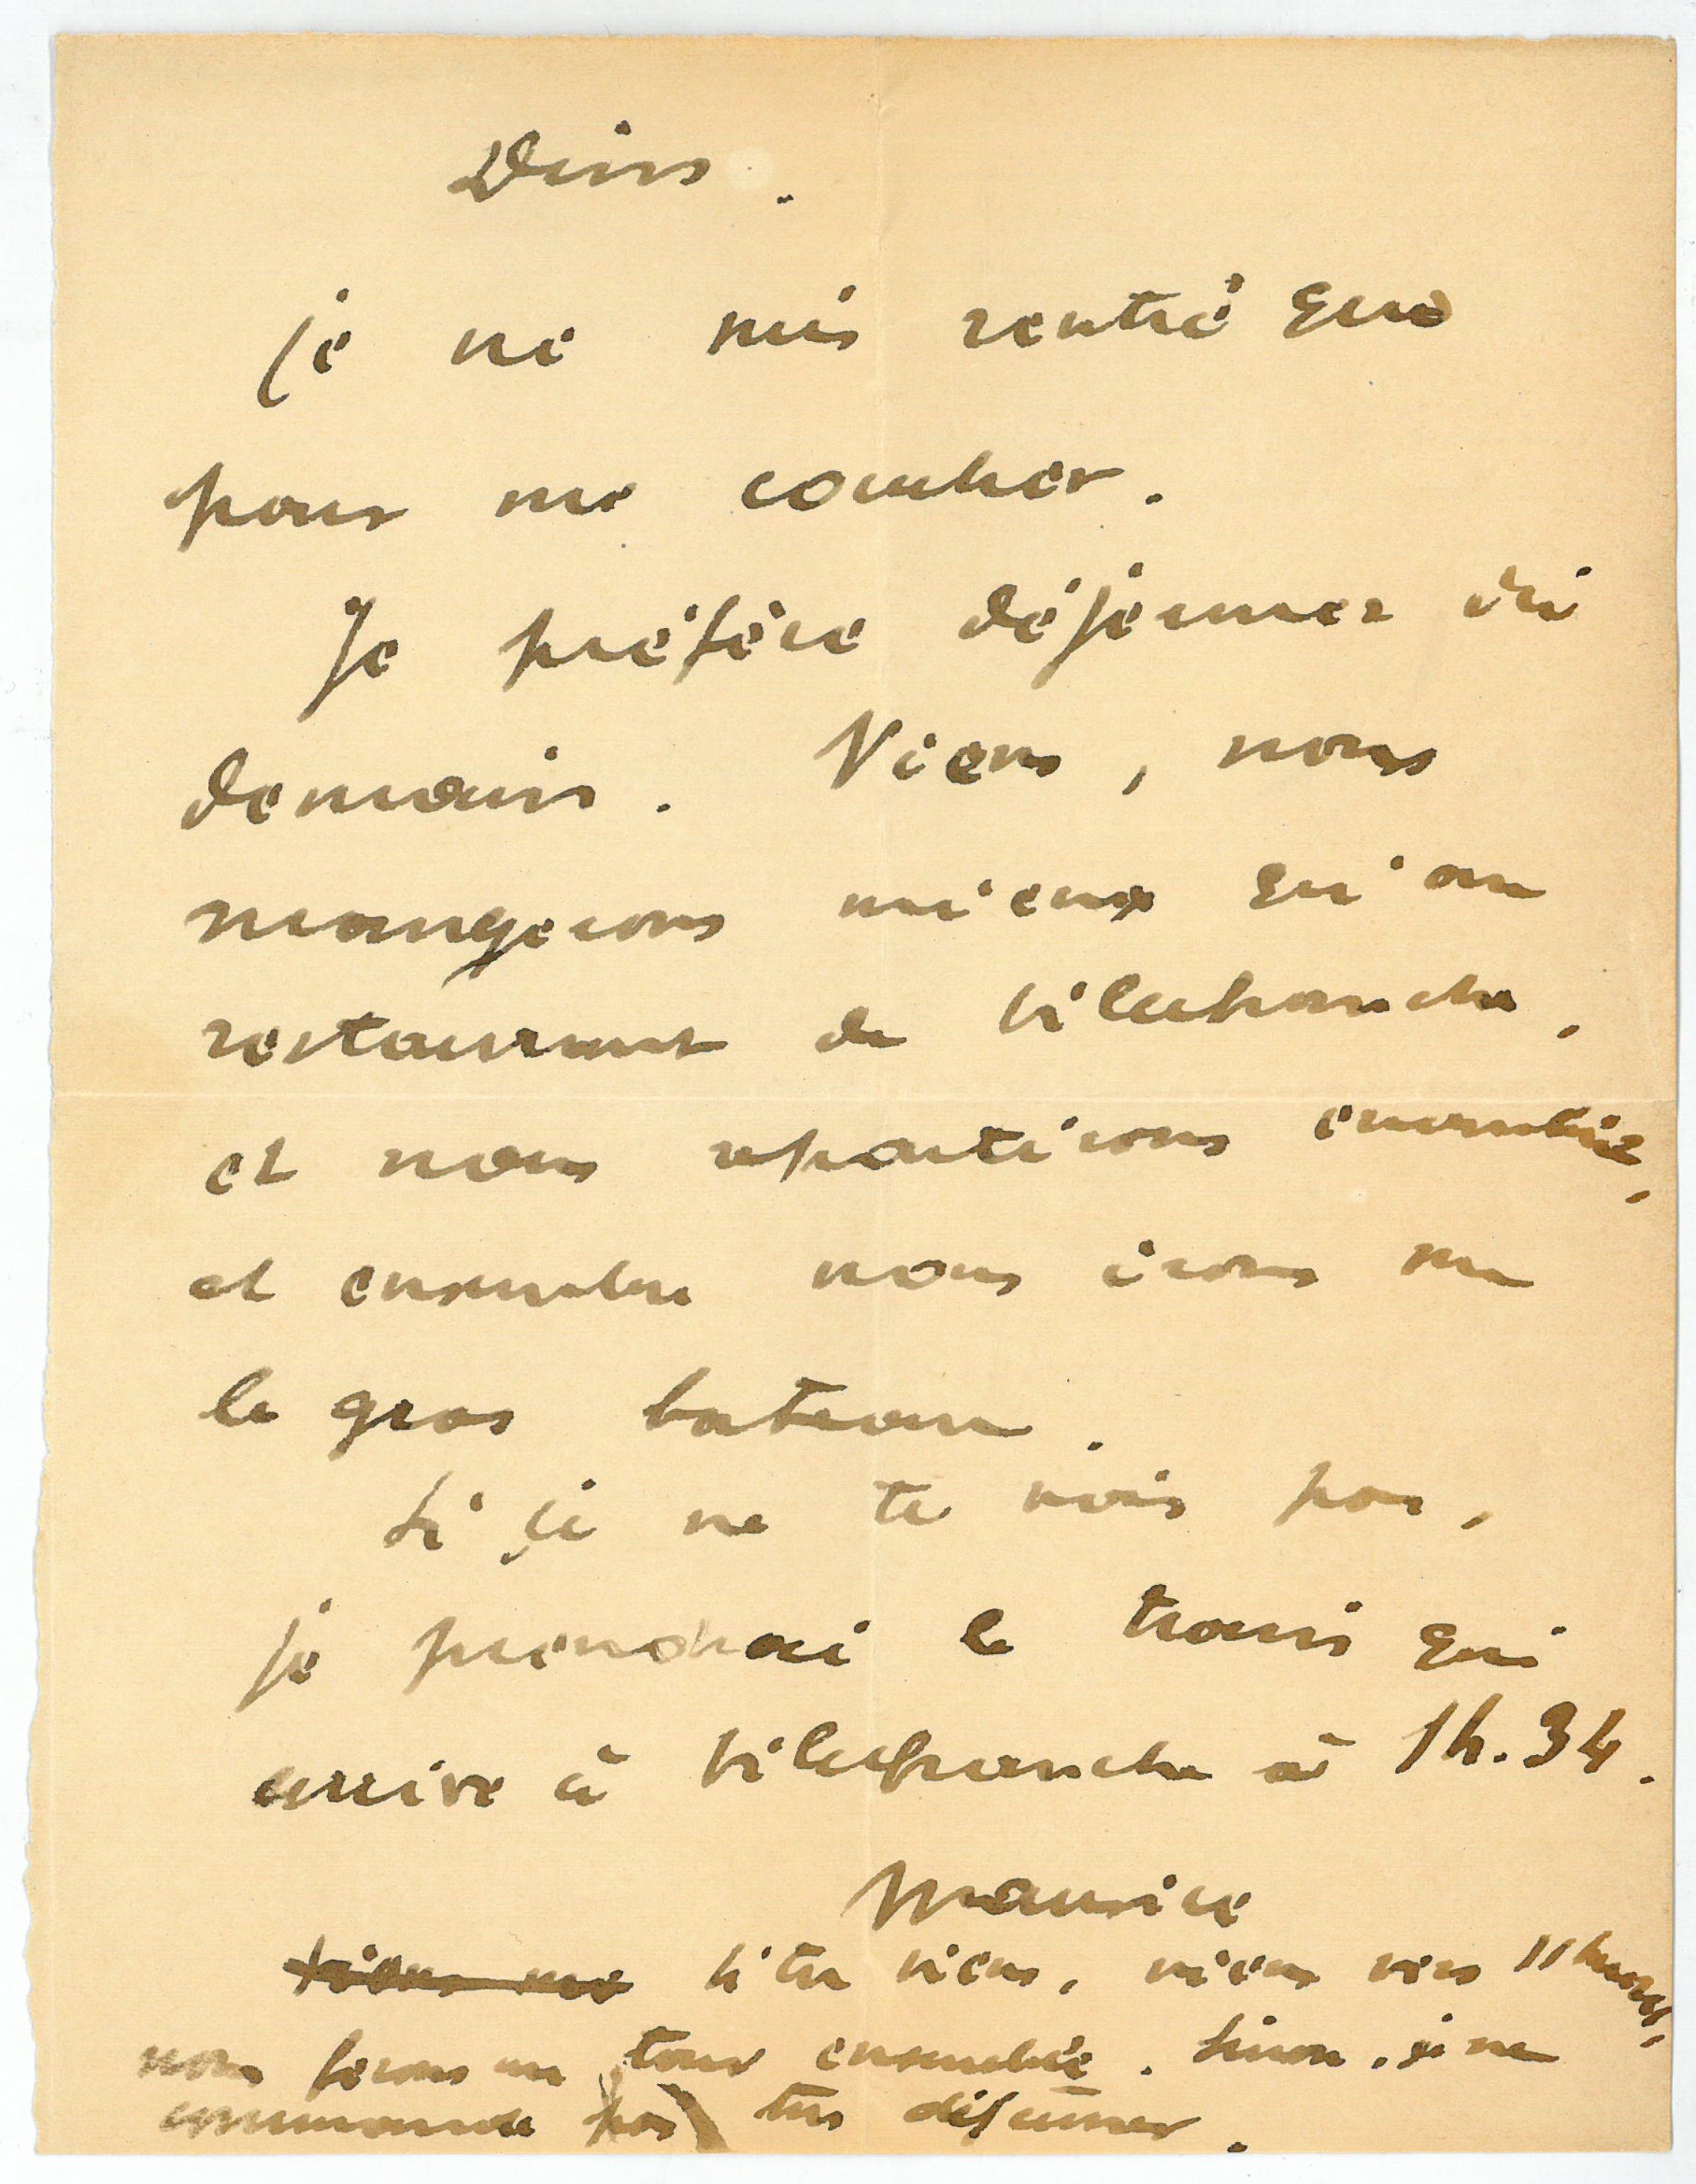 je ne suis rentré que
pour me coucher.
Je préfère déjeuner ici
demain. Viens, nous
mangerons mieux qu'au
restaurant de Villefranche,
et nous repartirons ensemble,
et ensemble nous irons sur
le gros bateau.
Si je ne te vois pas,
je prendrai le train qui
arrive à Villefranche à 1h.34.
Maurice
Si tu viens, viens vers 11 heures,
nous ferons un tour ensemble. Sinon, je ne
commande pas ton déjeuner.